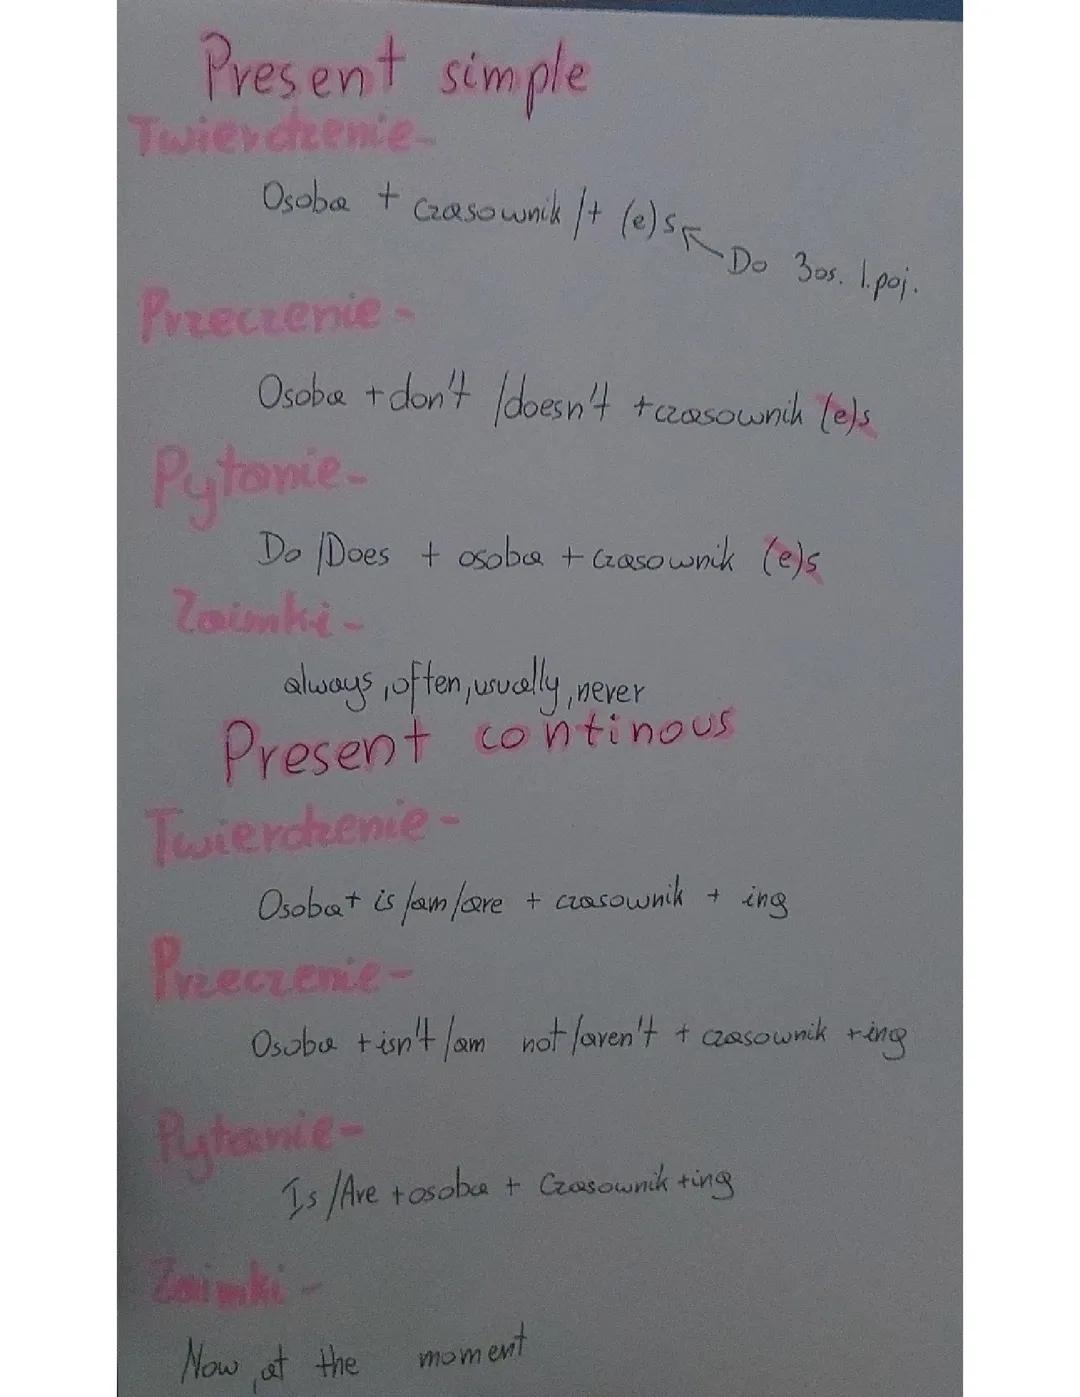 Present simple
Twierdzenie-
Osoba + czasownik /+ (e)s
Do 3os. l.poj.
Przeczenie -
Osoba + don't /doesn't + czasownik (e)s
Pytanie-
Do /Does + osoba + czasownik (e)s
Zaimki -
always, often, usually, never
Present continous
Twierdzenie -
Osoba + is /am /are + czasownik + ing
Przeczenie -
Osoba + isn't /am not /aren't + czasownik + ing
Pytanie-
Is /Are + osoba + Czasownik + ing
Zaimki -
Now, at the moment